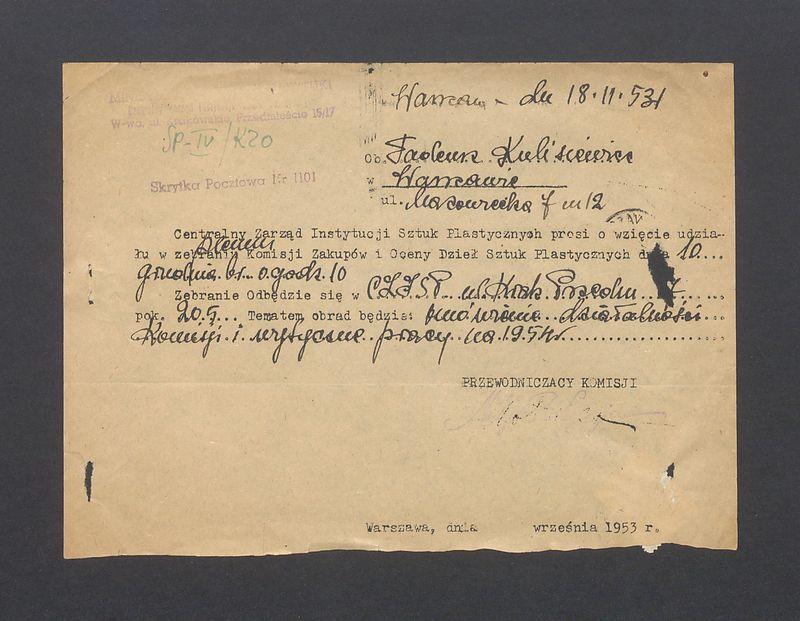 Warszawa - dn 18.11.53r
W-wa, ul. Krakowskie, Przedmieście 15/17
SP-IV/K20
Ob. Tadeusz Kulisiewicz
Skrytka Pocztowa Nr 1101
w Warszawie
ul. Mazowiecka 7 m 12
Centralny Zarząd Instytucji Sztuk Plastycznych prosi o wzięcie udzia-
plenum
łu w zebraniu Komisji Zakupów i Oceny Dzieł Sztuk Plastycznych dnia 10...
grudnia br. o godz. 10
Zebranie Odbędzie się w C.Z.I.S.P. ul. Krak. Przedm 7
pok. 205... Tematem obrad będzie: omówienie działalności
Komisji i wytyczne pracy na 1954r
PRZEWODNICZACY KOMISJI
Warszawa, dnia września 1953 r.